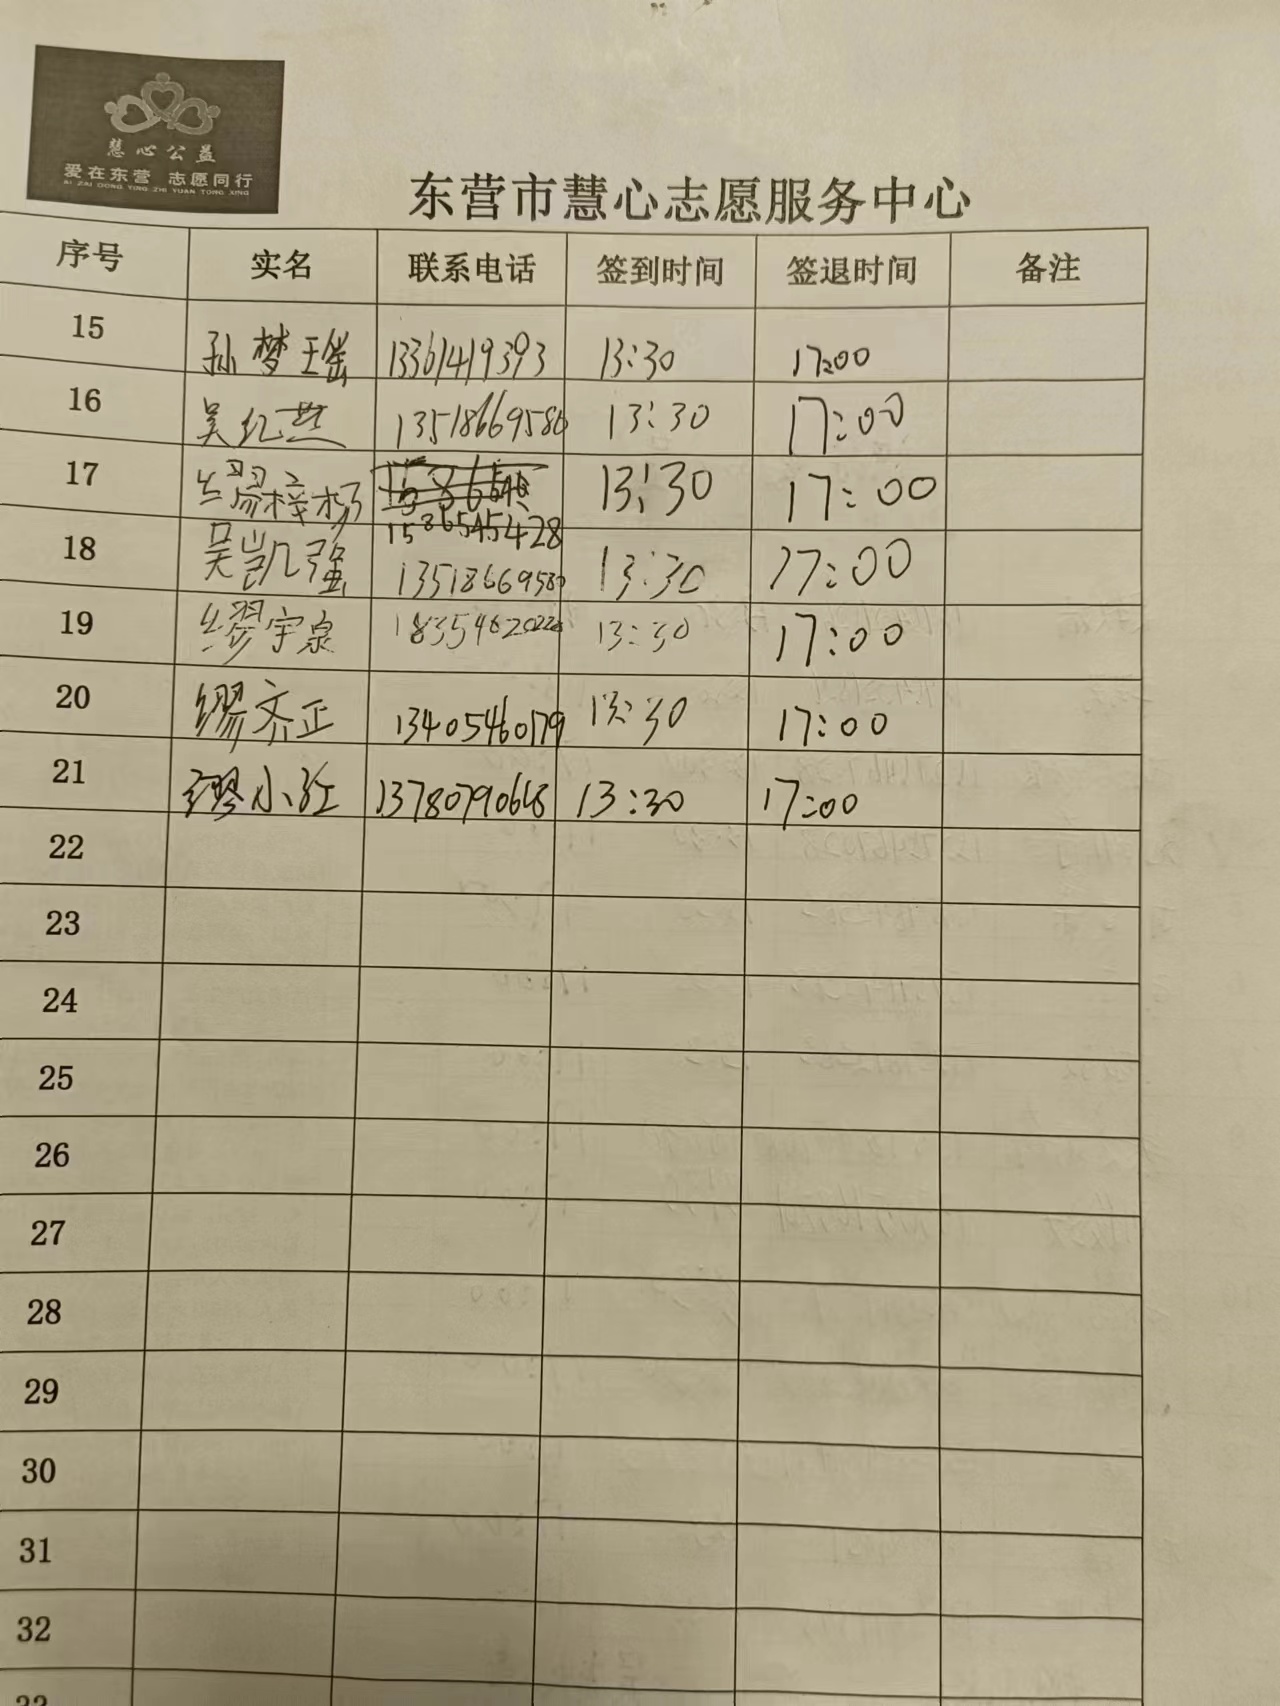 慧心公益
爱在东营 志愿同行
AI ZAI DONG YING ZHI YUAN TONG XING
东营市慧心志愿服务中心
序号 实名 联系电话 签到时间 签退时间 备注
15 孙梦瑶 13361419393 13:30 17:00
16 吴红燕 13518669586 13:30 17:00
17 缪梓杨 13:30 17:00
15865454428
18 吴凯强 13518669580 13:30 17:00
19 缪宇泉 13:30 17:00
20 缪齐正 13405460179 13:30 17:00
21 缪小红 13780790668 13:30 17:00
22
23
24
25
26
27
28
29
30
31
32
33